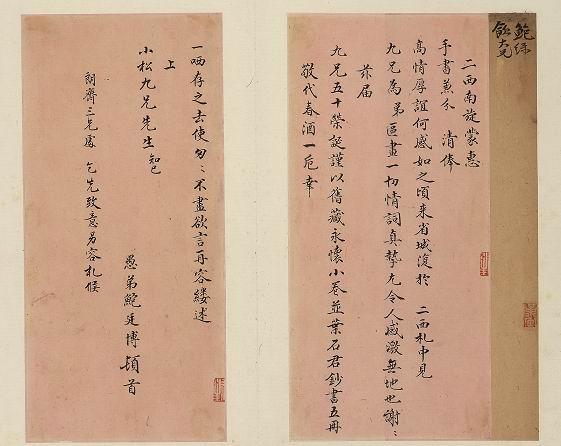 鮑綠
飲大兄
二西南旋蒙惠
手書兼分 清俸
高情厚誼何感如之頃來省城復於 二西札中見
九兄為弟區畫一切情詞真摯尤令人感激無地也謝〻
茲屆
九兄五十榮誕謹以舊藏永懷小卷並葉石君鈔書五冊
敬代春酒一卮幸
一哂存之去使匆〻不盡欲言再容縷述
上
小松九兄先生 知己
愚弟鮑廷博頓首
朗齋三兄處 乞先致意另容札候